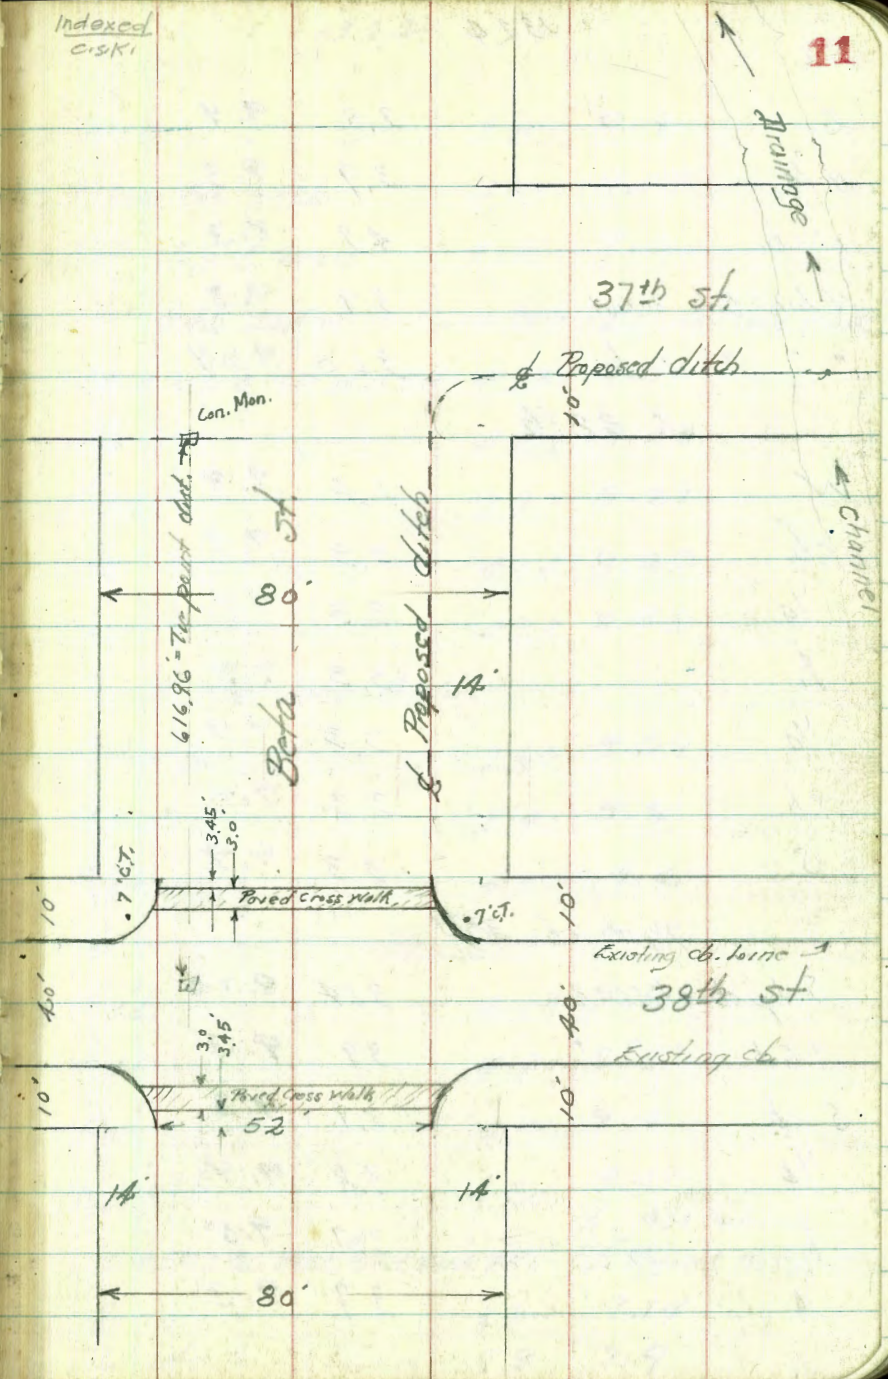 Indexed
C.S.K.
11
Drainage
37th St.
℄ Proposed ditch
10'
Con. Mon.
616.96' = Two point dist.
Beta St.
80'
℄ Proposed ditch
14'
Channel
3.45'
3.0'
7' C.T.
10'
Paved Cross Walk
7' C.T.
10'
Existing cb. Line
40'
40'
38th St
3.0'
3.45'
Existing cb.
10'
Paved Cross Walk
10'
52'
14'
14'
80'